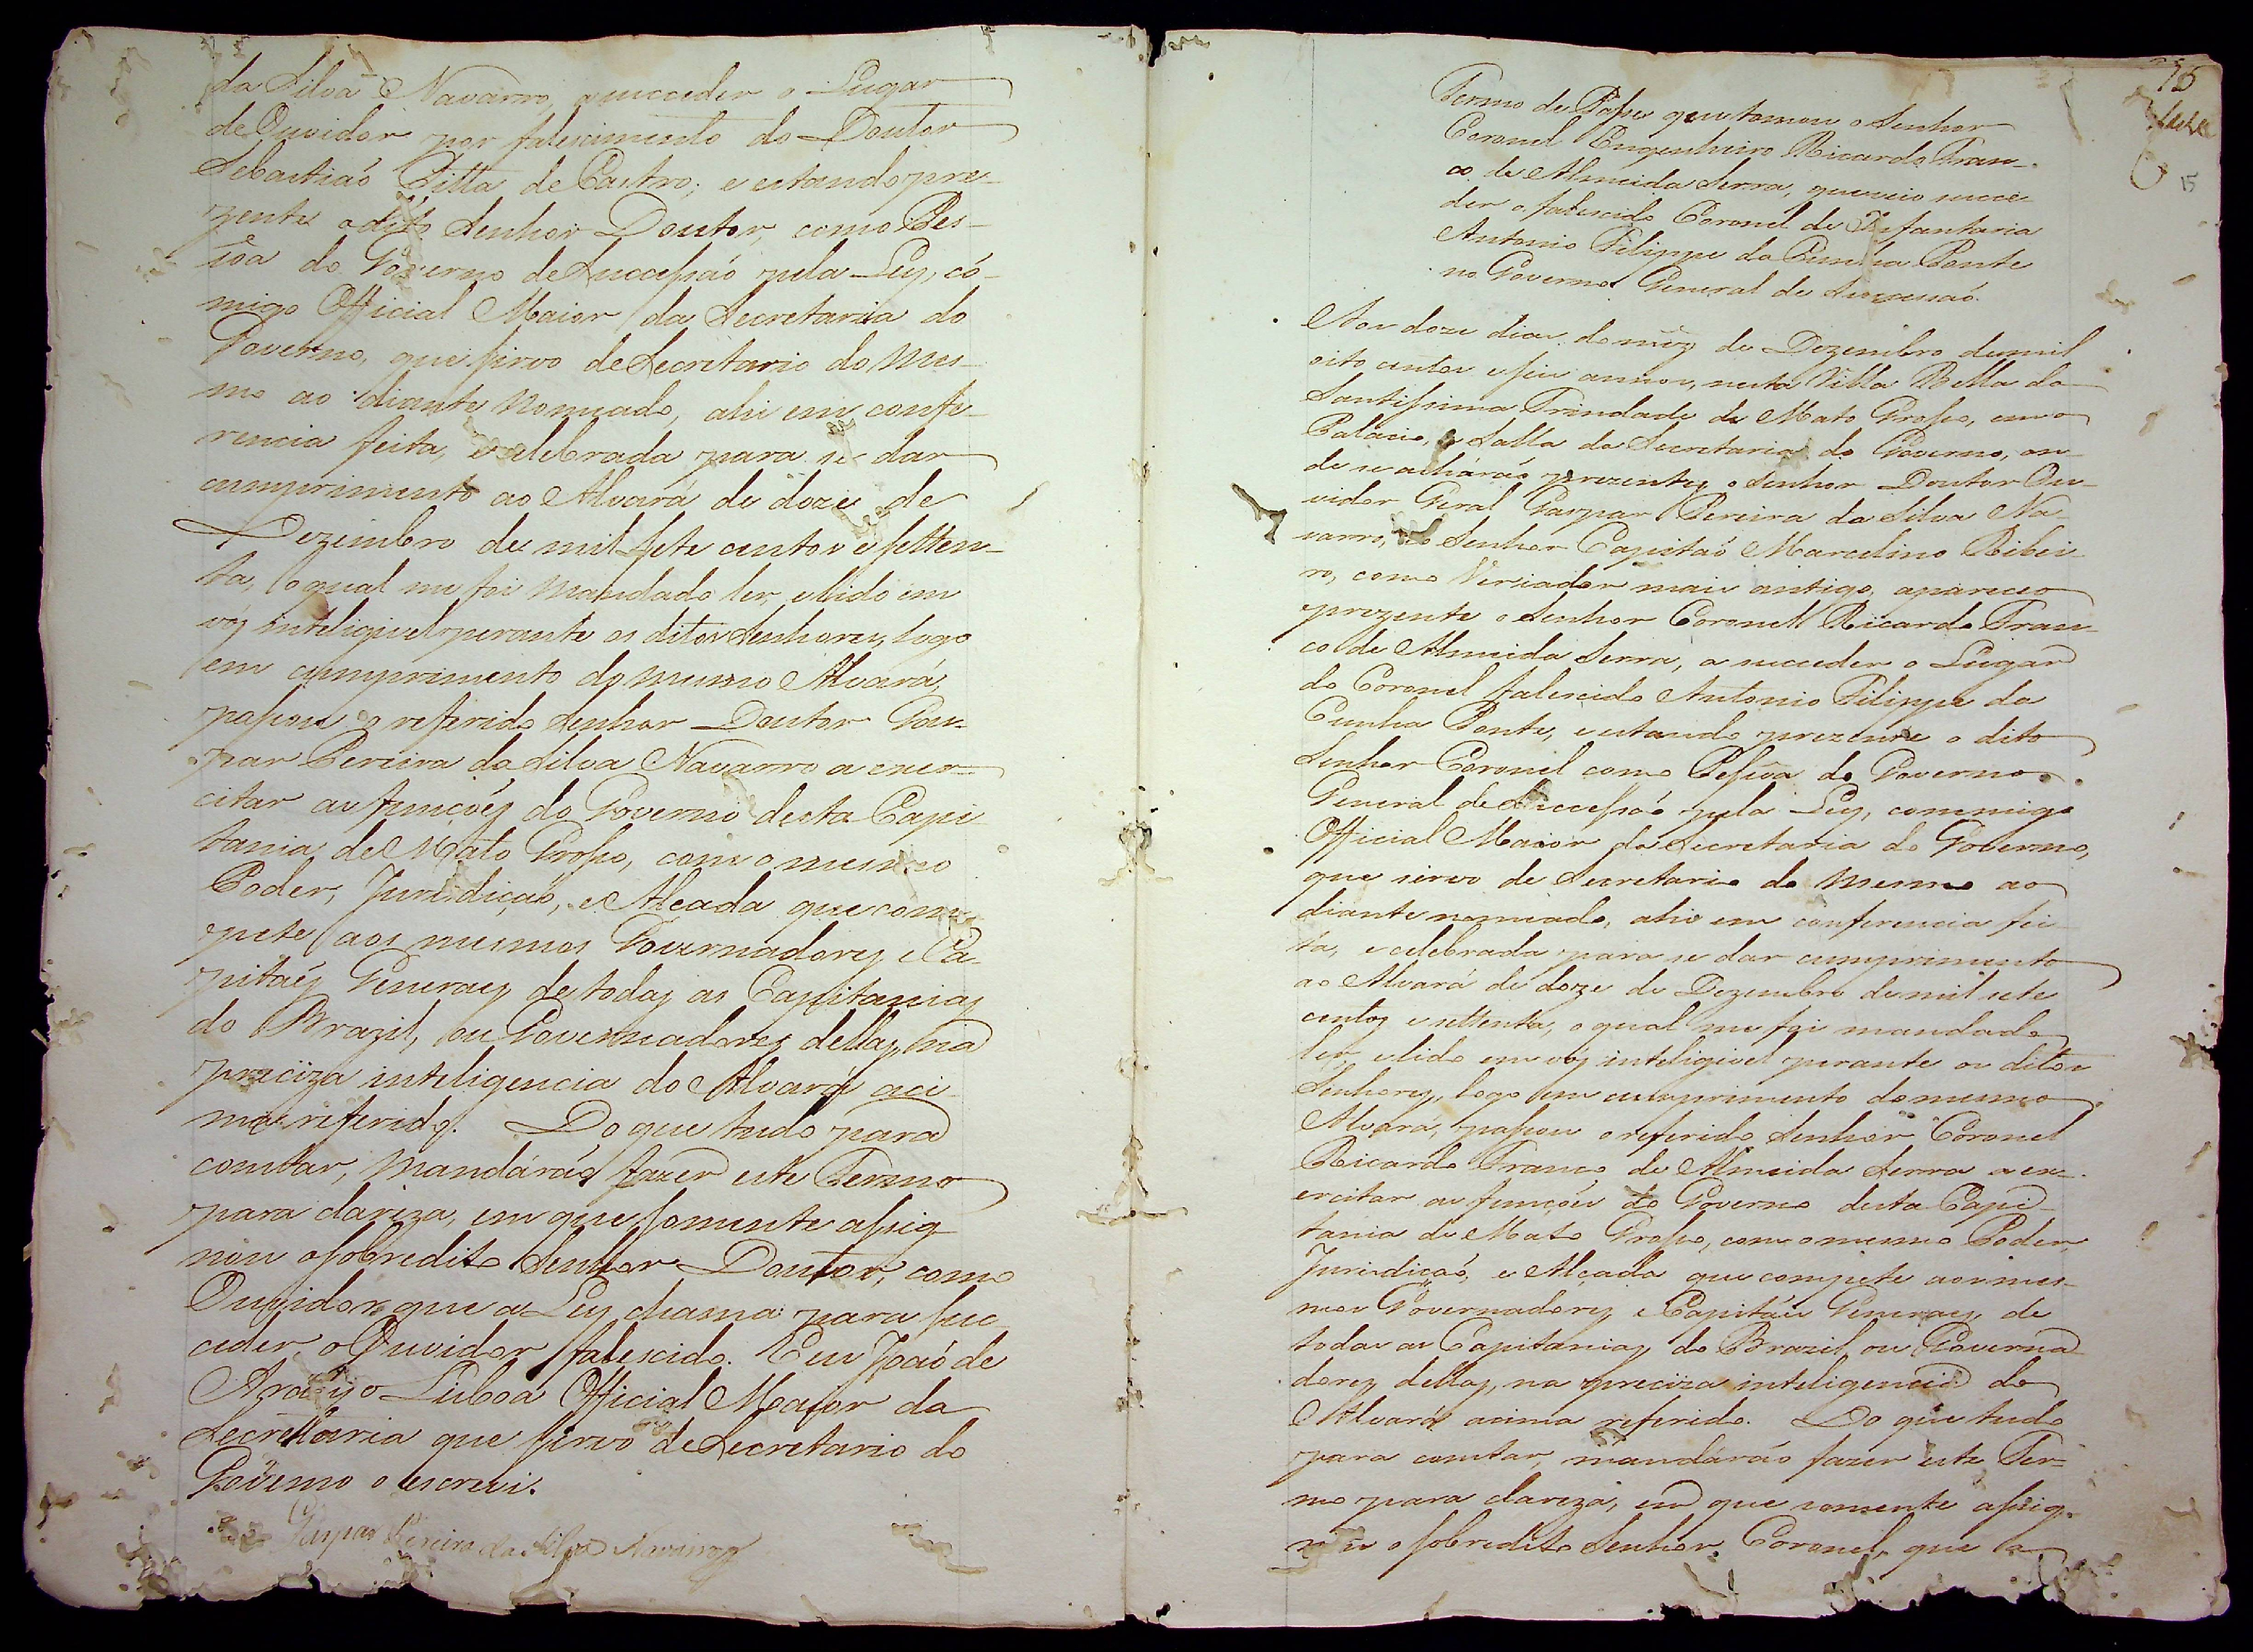 da Silva Navarro, a succeder o Lugar
de Ouvidor por falescimento do Doutor
Sebastiaó Pitta de Castro; e estando pre-
zente o dito Senhor Doutor, como Pes-
sôa do Governo de Successaó pela Ley, có-
migo Official Maior da Secretaria do
Governo, que sirvo de Secretario do mes-
mo ao diante nomeado, ahi em confe-
rencia feita, e celebrada para se dar
cumprimento ao Alvará de doze de
Dezembro de mil sete centos e setten-
ta, o qual me foi mandado ler, e lido em
vóz inteligivel perante os ditos Senhores, logo
em cumprimento do mesmo Alvará,
passou o referido Senhor Doutor Gas-
par Pereira da Silva Navarro a exer-
citar as funçoẽs do Governo desta Capi-
tania de Mato Grosso, com o mesmo
Poder, Jurisdiçaó, e Alçada que com-
pete aos mesmos Governadores, e Ca-
pitaẽs Generaes de todas as Capitanias
do Brazil, ou Governadores dellas, na
preciza inteligencia do Alvará aci-
ma referido. Do que tudo para
constar, mandáraó fazer este Termo
para clareza, em que somente assig-
nou o sobredito Senhor Doutor, como
Ouvidor que a Ley chama para suc-
ceder, o Ouvidor falescido. Eu Joaó de
Araujo Lisboa Official Maior da
Secretaria que sirvo de Secretario do
Governo o escrevi.
Gaspar Pereira da Silva Navarro
75
15
Termo de Posse que tomou o Senhor
Coronel Engenheiro Ricardo Fran-
co de Almeida Serra, que veio succe-
der o falescido Coronel de Infantaria
Antonio Filippe da Cunha Ponte
no Governo General de Sucessaó.
Aos doze dias do mêz de Dezembro de mil
oito centos e seis annos, nesta Villa Bella da
Santissima Trindade de Mato Grosso, em o
Palacio, e Salla da Secretaria do Governo, on-
de se acháraó prezentes o Senhor Doutor Ou-
vidor Geral Gaspar Pereira da Silva Na-
varro, e o Senhor Capitaó Marcelino Ribei-
ro, como Veriador mais antigo, apareceo
prezente o Senhor Coronel Ricardo Fran-
co de Almeida Serra, a succeder o Lugar
do Coronel falescido Antonio Filippe da
Cunha Ponte, e estando prezente o dito
Senhor Coronel como Pessôa do Governo
General de Successaó pela Ley, commigo
Official Maior da Secretaria do Governo,
que sirvo de Secretario do mesmo ao
diante nomeado, ahi em conferencia fei-
ta, e celebrada para se dar cumprimento
ao Alvará de doze de Dezembro de mil sete
centos e settenta, o qual me foi mandado
ler, e lido em voz inteligivel perante os ditos
Senhores, logo em cumprimento do mesmo
Alvará, passou o referido Senhor Coronel
Ricardo Franco de Almeida Serra a ex-
ercitar as funçoẽs do Governo desta Capi-
tania de Mato Grosso, com o mesmo Poder,
Jurisdiçaó, e Alçada que compete aos mes-
mos Governadores, e Capitaẽs Generaes, de
todas as Capitanias do Brazil, ou Governa-
dores dellas, na preciza inteligencia do
Alvará acima referido. Do que tudo
para constar, mandáraó fazer este Ter-
mo para clareza, em que somente assig-
nou o sobredito Senhor Coronel, que a